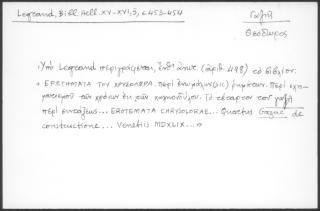 Legrand, Bibl. Hell. XV-XVI, 3, σ. 453-454
Γαζῆς
Θεόδωρος
Ὑπὸ Legrand περιγράφεται, ἔνθ' ἄνω (ἀριθ. 498) τὸ βιβλίον:
« ΕΡΩΤΗΜΑΤΑ ΤΟΥ ΧΡΥΣΟΛΩΡΑ. Περὶ ἀνωμάλων (sic) ῥημάτων. Περὶ σχη-
ματισμοῦ τῶν χρόνων ἐκ τῶν χαλκονδύλου. Τὸ τέταρτον τοῦ Γαζῆ
περὶ συντάξεως... EROTEMATA CHRYSOLORAE... Quartus Gazae de
constructione... Venetiis MDXLIX... »